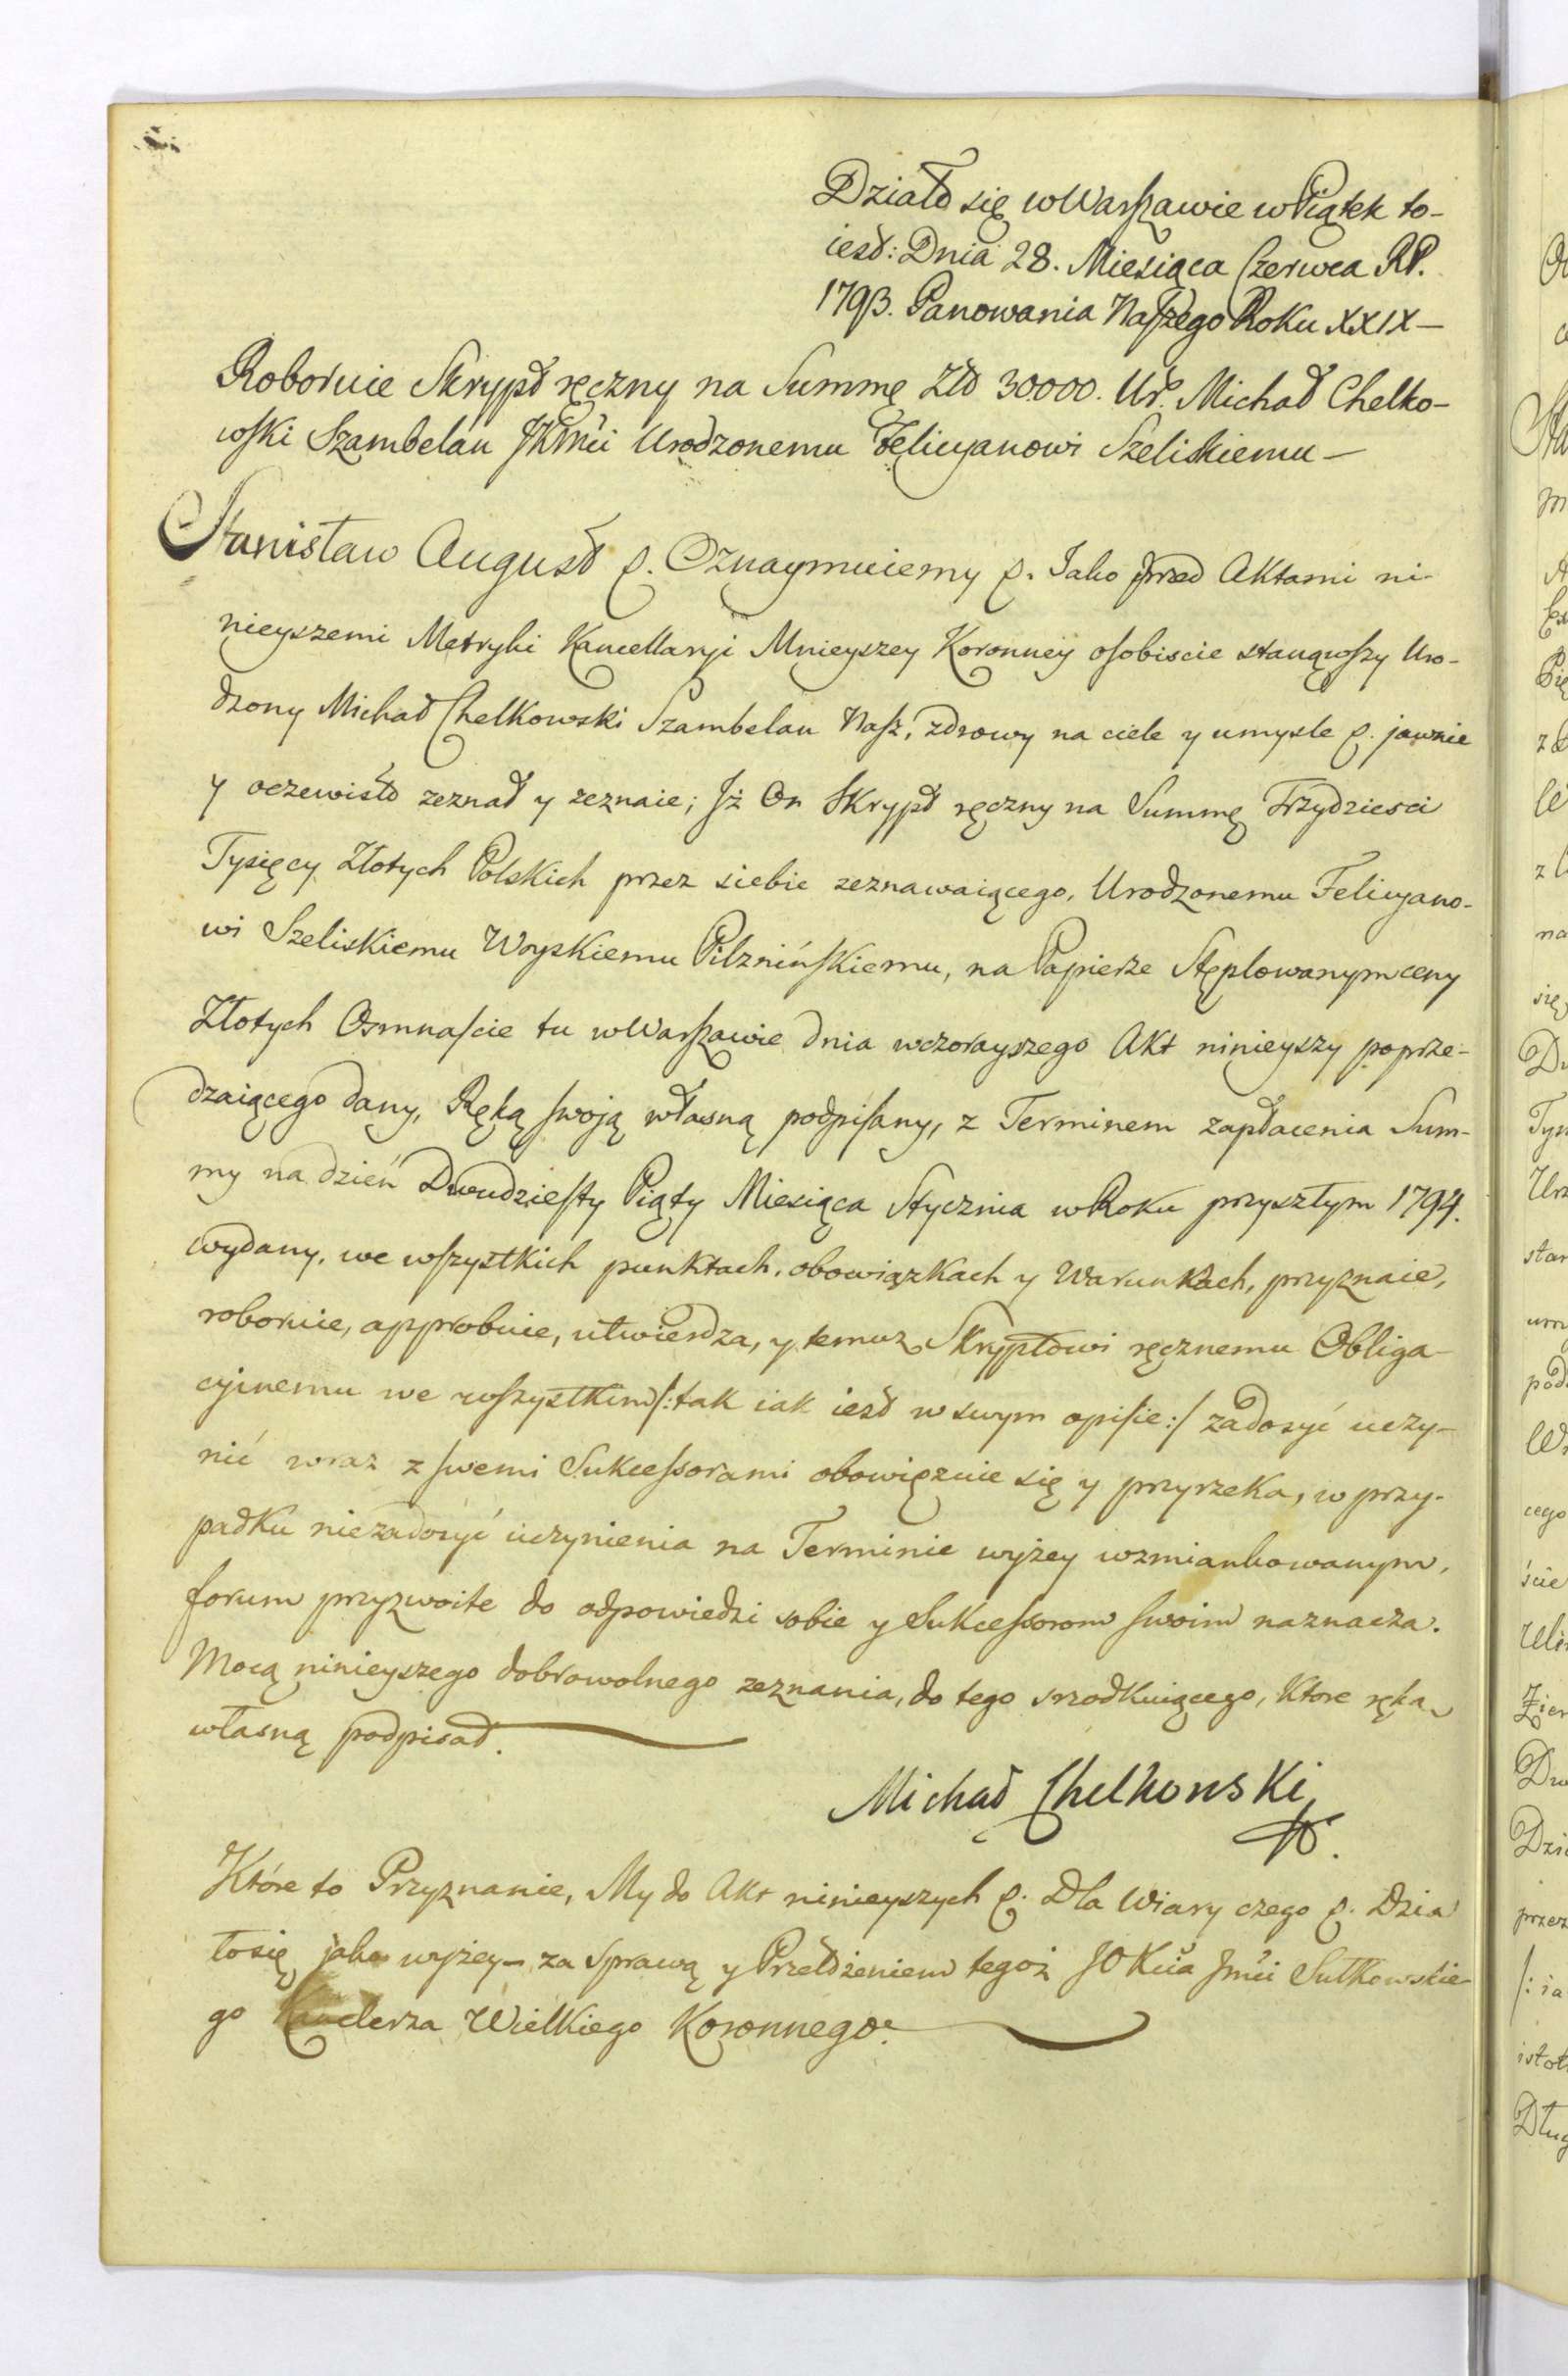 Działo się w Warszawie w Piątek to-
iest: Dnia 28. Miesiąca Czerwca RP.
1793. Panowania Naszego Roku XXIX —
Roboruie Skrypt ręczny na Summę Złο 30000. Ur. Michał Chelko-
wski Szambelan JKMci Urodzonemu Felicyanowi Szeliskiemu —
Stanisław August &. Oznaymuiemy &. Jako przed Aktami ni-
nieyszemi Metryki Kancellaryi Mnieyszey Koronney osobiscie stanąwszy Uro-
dzony Michał Chelkowski Szambelan Nasz, zdrowy na ciele y umysle &. jawnie
y oczewisto zeznał y zeznaie; Jż On Skrypt ręczny na Summę Trzydziesci
Tysięcy Złotych Polskich przez siebie zeznawaiącego, Urodzonemu Felicyano-
wi Szeliskiemu Woyskiemu Pilznińskiemu, na Papierze Stęplowanym ceny
Złotych Osmnascie tu w Warszawie dnia wczorayszego Akt ninieyszy poprze-
dzaiącego dany, Ręką swoią własną podpisany, z Terminem zapłacenia Sum-
my na dzień Dwudziesty Piąty Miesiąca Stycznia w Roku przyszłym 1794.
wydany, we wszystkich punktach, obowiązkach y Warunkach, przyznaie,
roboruie, approbuie, utwierdza, y temuz Skryptowi ręcznemu Obliga-
cyinemu we wszystkim /: tak iak iest w swym opisie :/ zadosyć uczy-
nić wraz z swemi Sukcessorami obowięzuie się y przyrzeka, w przy-
padku niezadosyć uczynienia na Terminie wyżey wzmiankowanym,
forum przyzwoite do odpowiedzi sobie y Sukcessorom swoim naznacza.
Mocą ninieyszego dobrowolnego zeznania, do tego srzodkuiącego, Ktore ręką
własną podpisał.
Michał Chelkowski
Które to Przyznanie, My do Akt ninieyszych &. Dla Wiary czego &. Dzia
ło się jako wyżey — za Sprawą y Przełożeniem tegoż JO Kcia Jmci Sułkowskie-
go Kanclerza Wielkiego Koronnego.